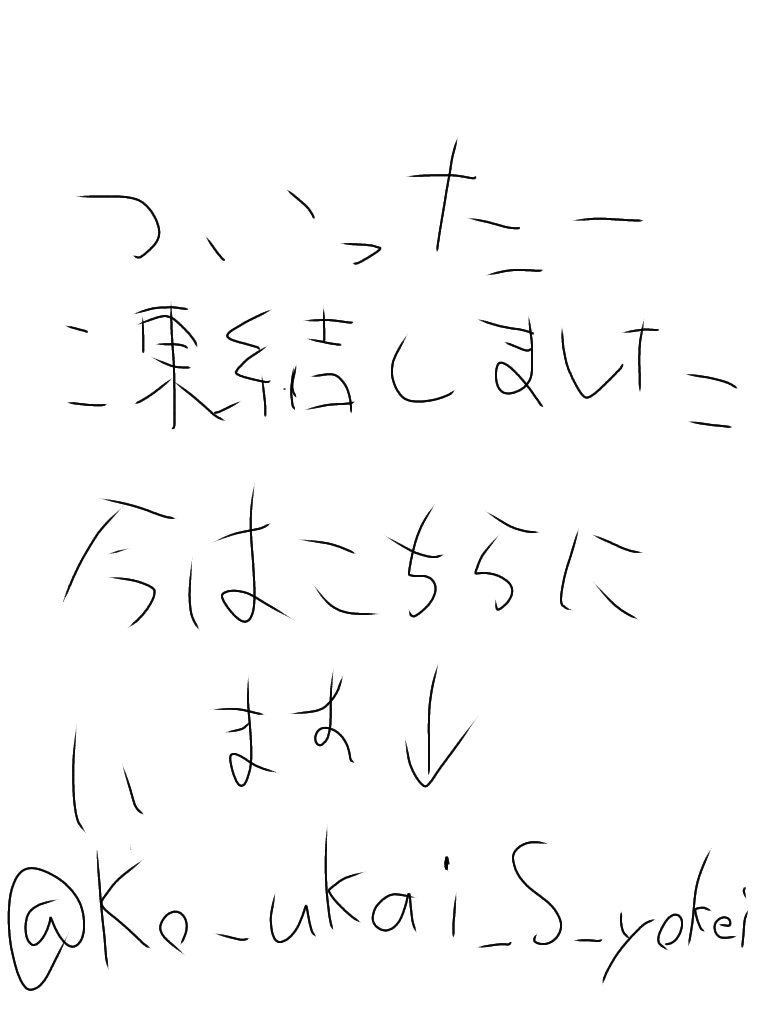 ついったー
凍結しました
今はこちらに
います↓
@Ko_ukai_S_yokei